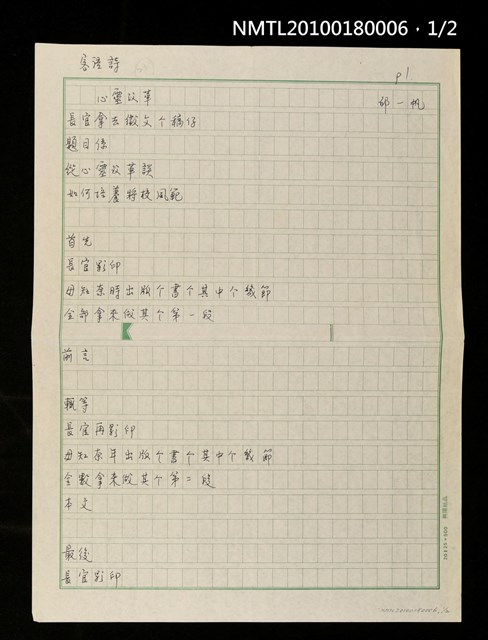 NMTL20100180006，1/2
客語詩
p1.
心靈改革
邱一帆
長官拿去做文个稿仔
題目係
從心靈改革談
如何培養將校風範
首先
長官影印
毋知奈時出版个書个其中个幾節
全部拿來做其个第一段
前言
輒等
長官再影印
毋知奈年出版个書个其中个幾節
全數拿來做其个第二段
本文
最後
長官影印